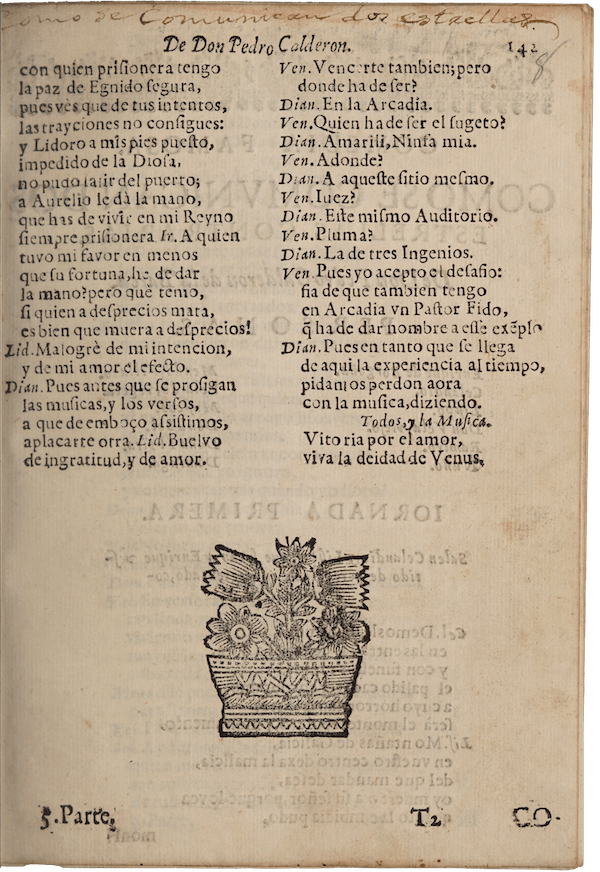 Como se Comunican dos estrellas
De Don Pedro Calderon.
142
8
con quien prisionera tengo
la paz de Egnido segura,
pues ves que de tus intentos,
las trayciones no consigues:
y Lidoro a mis pies puesto,
impedido de la Diosa,
no pudo salir del puerto;
a Aurelio le dà la mano,
que has de vivir en mi Reyno
siempre prisionera Ir. A quien
tuvo mi favor en menos
que su fortuna, he de dar
la mano? pero què temo,
si quien a desprecios mata,
es bien que muera a desprecios!
Lid. Malogrè de mi intencion,
y de mi amor el efecto.
Dian. Pues antes que se prosigan
las musicas, y los versos,
a que de emboço assistimos,
aplacarte otra. Lid. Buelvo
de ingratitud, y de amor.
Ven. Vencerte tambien; pero
donde ha de ser?
Dian. En la Arcadia.
Ven. Quien ha de ser el sugeto?
Dian. Amarili, Ninfa mia.
Ven. Adonde?
Dian. A aqueste sitio mesmo.
Ven. Iuez?
Dian. Este mismo Auditorio.
Ven. Pluma?
Dian. La de tres Ingenios.
Ven. Pues yo acepto el desafio:
fia de que tambien tengo
en Arcadia vn Pastor Fido,
q̃ ha de dar nombre a esse exẽplo
Dian. Pues en tanto que se llega
de aqui la experiencia al tiempo,
pidamos perdon aora
con la musica, diziendo.
Todos, y la Musica.
Vitoria por el amor,
viva la deidad de Venus.
5. Parte.
T2
CO-